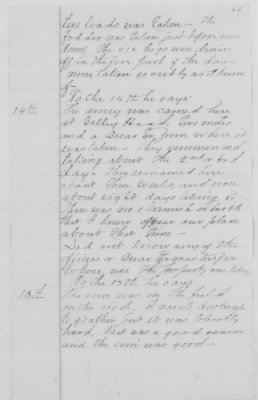 ters loads was taken — the
fodder was taken just before sun
down, the six hogs were driven
off in the fore part of the day —
none taken secretly as I know
of —
To the 14th he says
14th
The army was camped here
at Gilley's Head, two miles
and a from where it
was taken — They commenced
taking about the 2nd or 3rd
day — They remained here
about three weeks and were
about eight days taking it
There was no skirmish or battle
that I know of near our place
about that time —
Did not know any of the
officers or Quartermaster for
whose use the property was taken
To the 15th he says
15th
The corn was in the field
on the stock, it wasn't dry enough
to gather but it was tolerably
hard, that was a good season
and the corn was good —